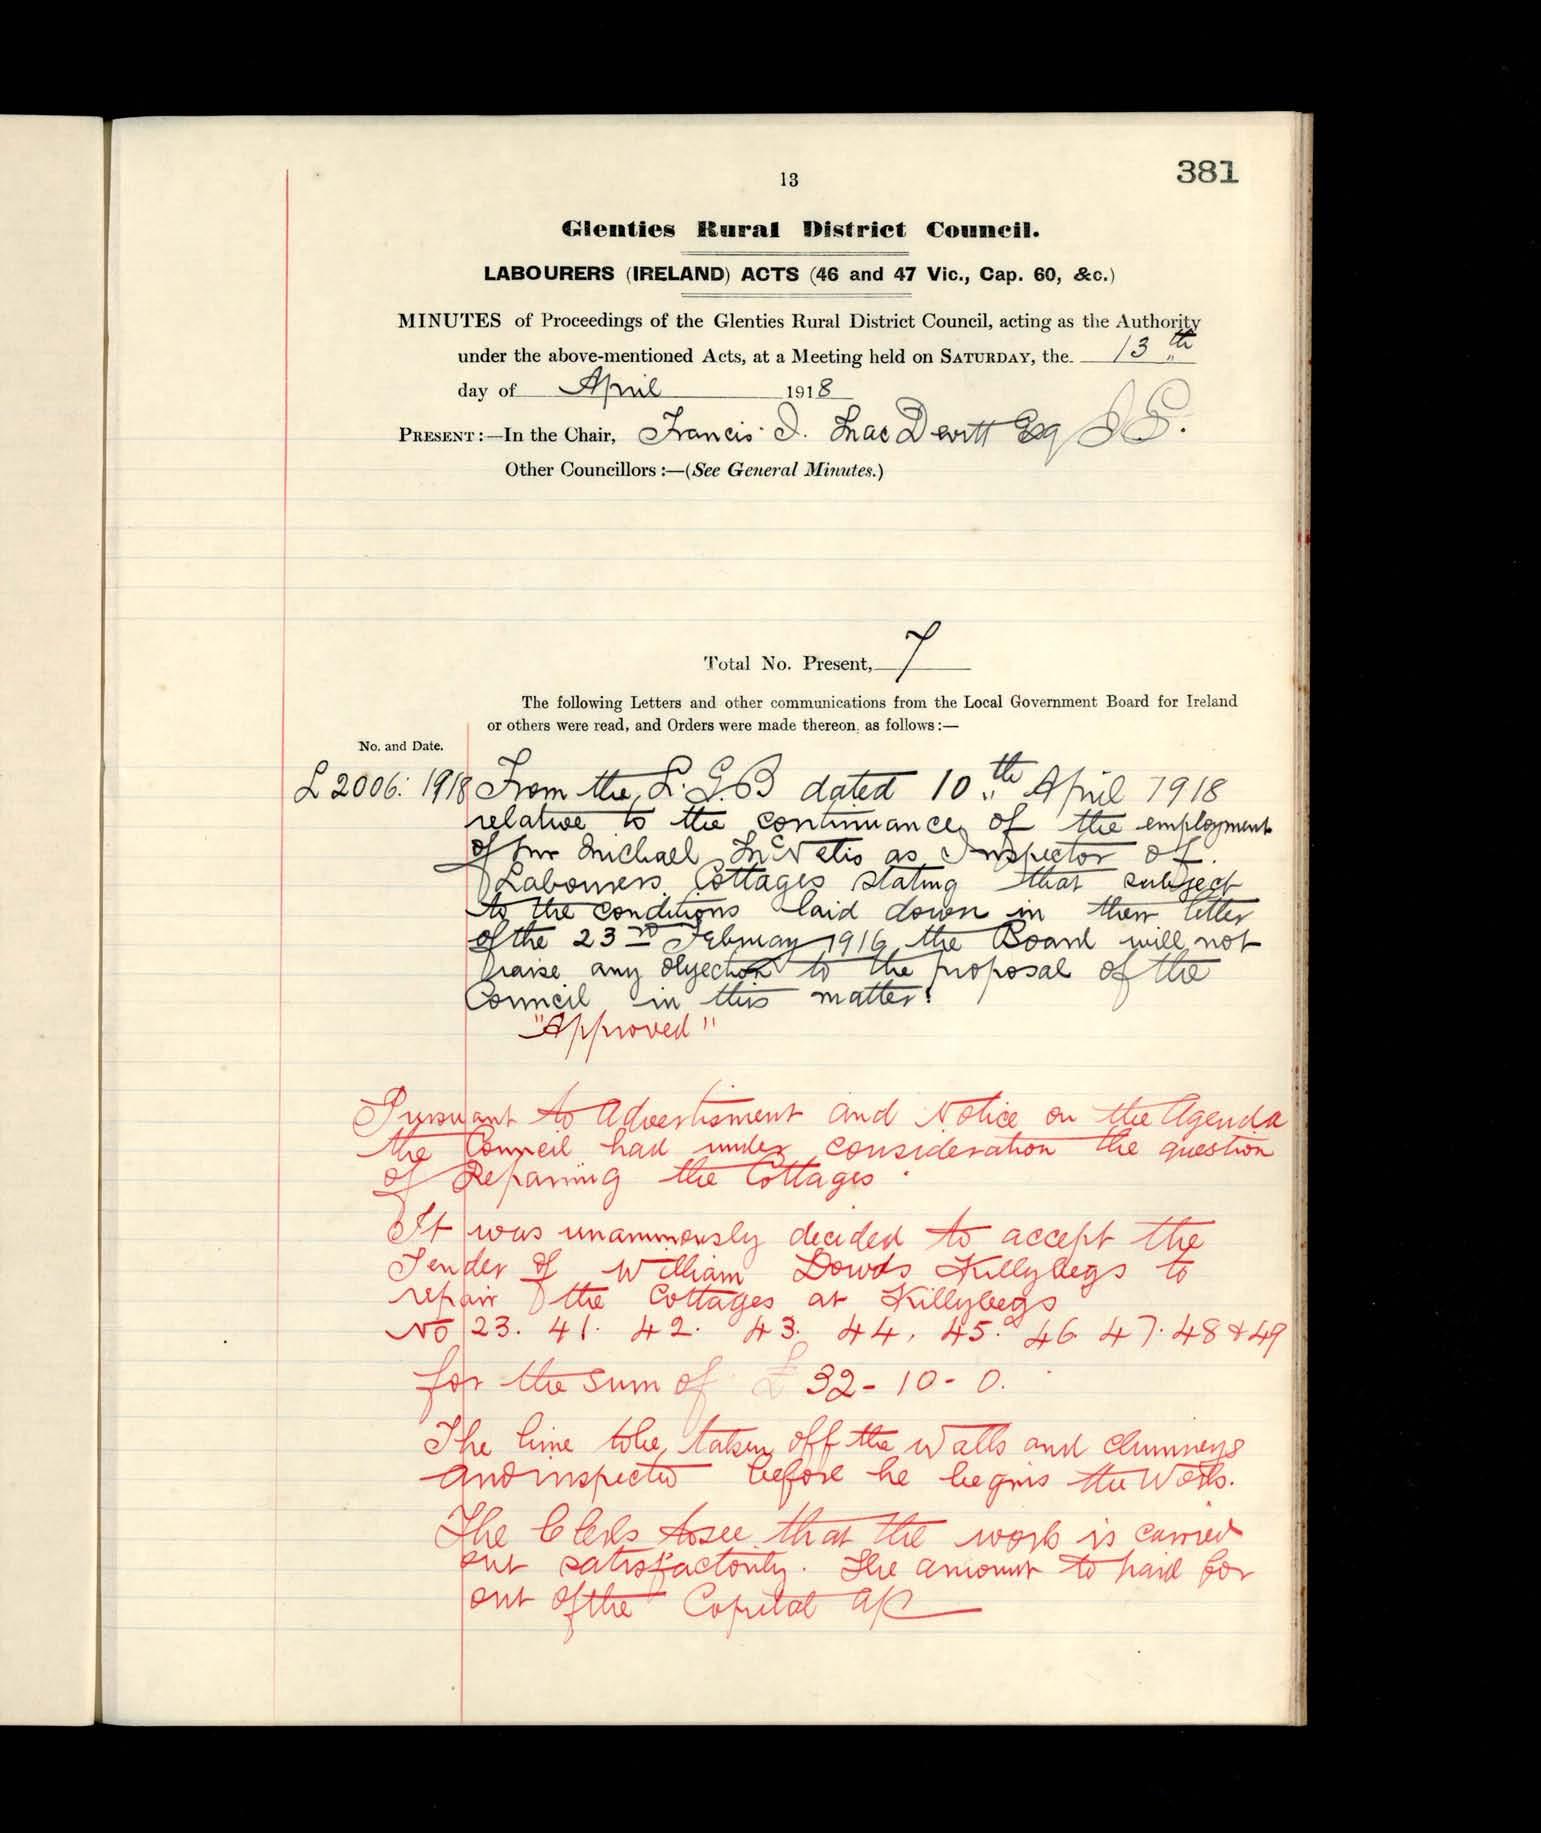 381
13
Glenties Rural District Council.
LABOURERS (IRELAND) ACTS (46 and 47 Vic., Cap. 60, &c.)
MINUTES of Proceedings of the Glenties Rural District Council, acting as the Authority
under the above-mentioned Acts, at a Meeting held on SATURDAY, the 13th
day of April 1918
PRESENT:—In the Chair, Francis I. MacDevitt Esq
Other Councillors:—(See General Minutes.)
Total No. Present, 7
The following Letters and other communications from the Local Government Board for Ireland
or others were read, and Orders were made thereon, as follows:—
No. and Date.
L 2006: 1918 From the L.G.B dated 10th April 1918
relative to the continuance of the employment
of Mr Michael McNelis as Inspector of
Labourers Cottages stating that subject
to the conditions laid down in their letter
of the 23rd February 1916 the Board will not
raise any objection to the proposal of the
Council in this matter.
"Approved"
Pursuant to Advertisment and Notice on the Agenda
the Council had under consideration the question
of Repairing the Cottages
It was unanimously decided to accept the
Tender of William Dowds Killybegs to
repair the Cottages at Killybegs
No 23. 41. 42. 43. 44. 45. 46. 47. 48 & 49
for the sum of £32-10-0.
The lime to be taken off the Walls and chimneys
and inspected before he begins the Work.
The Clerk to see that the work is carried
out satisfactorily. The amount to paid for
out of the Capital a/c